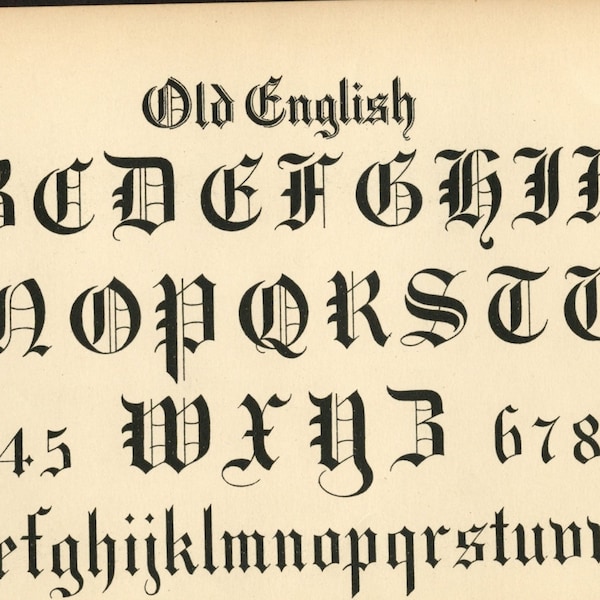 Old English
B C D E F G H I J
N O P Q R S T U
4 5 W X Y Z 6 7 8
e f g h i j k l m n o p q r s t u v w